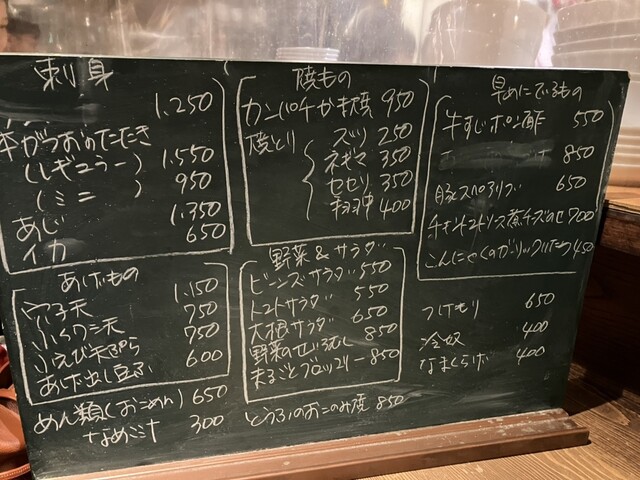 刺身
1.250
がつおのたたき
(レギュラー) 1.550
(ミニ) 950
あじ 1.350
イカ 650
焼もの
カンパチかま焼 950
焼とり ズリ 250
ネギマ 350
セセリ 350
400
早めにでるもの
牛すじポン酢 550
850
豚スペアリブ 650
チキントマトソース煮チーズのせ 700
こんにゃくのガーリックいため 450
あげもの
穴子天 1.150
天 750
小えび天ぷら 750
あげ出し豆ふ 600
野菜&サラダ
ビーンズサラダ 550
トマトサラダ 550
大根サラダ 650
野菜のせいろむし 850
まるごとブロッコリー 850
つけもり 650
冷奴 400
なまくらげ 400
めん類(おこのみ) 650
なめこ汁 300
とうふのおこのみ焼 850